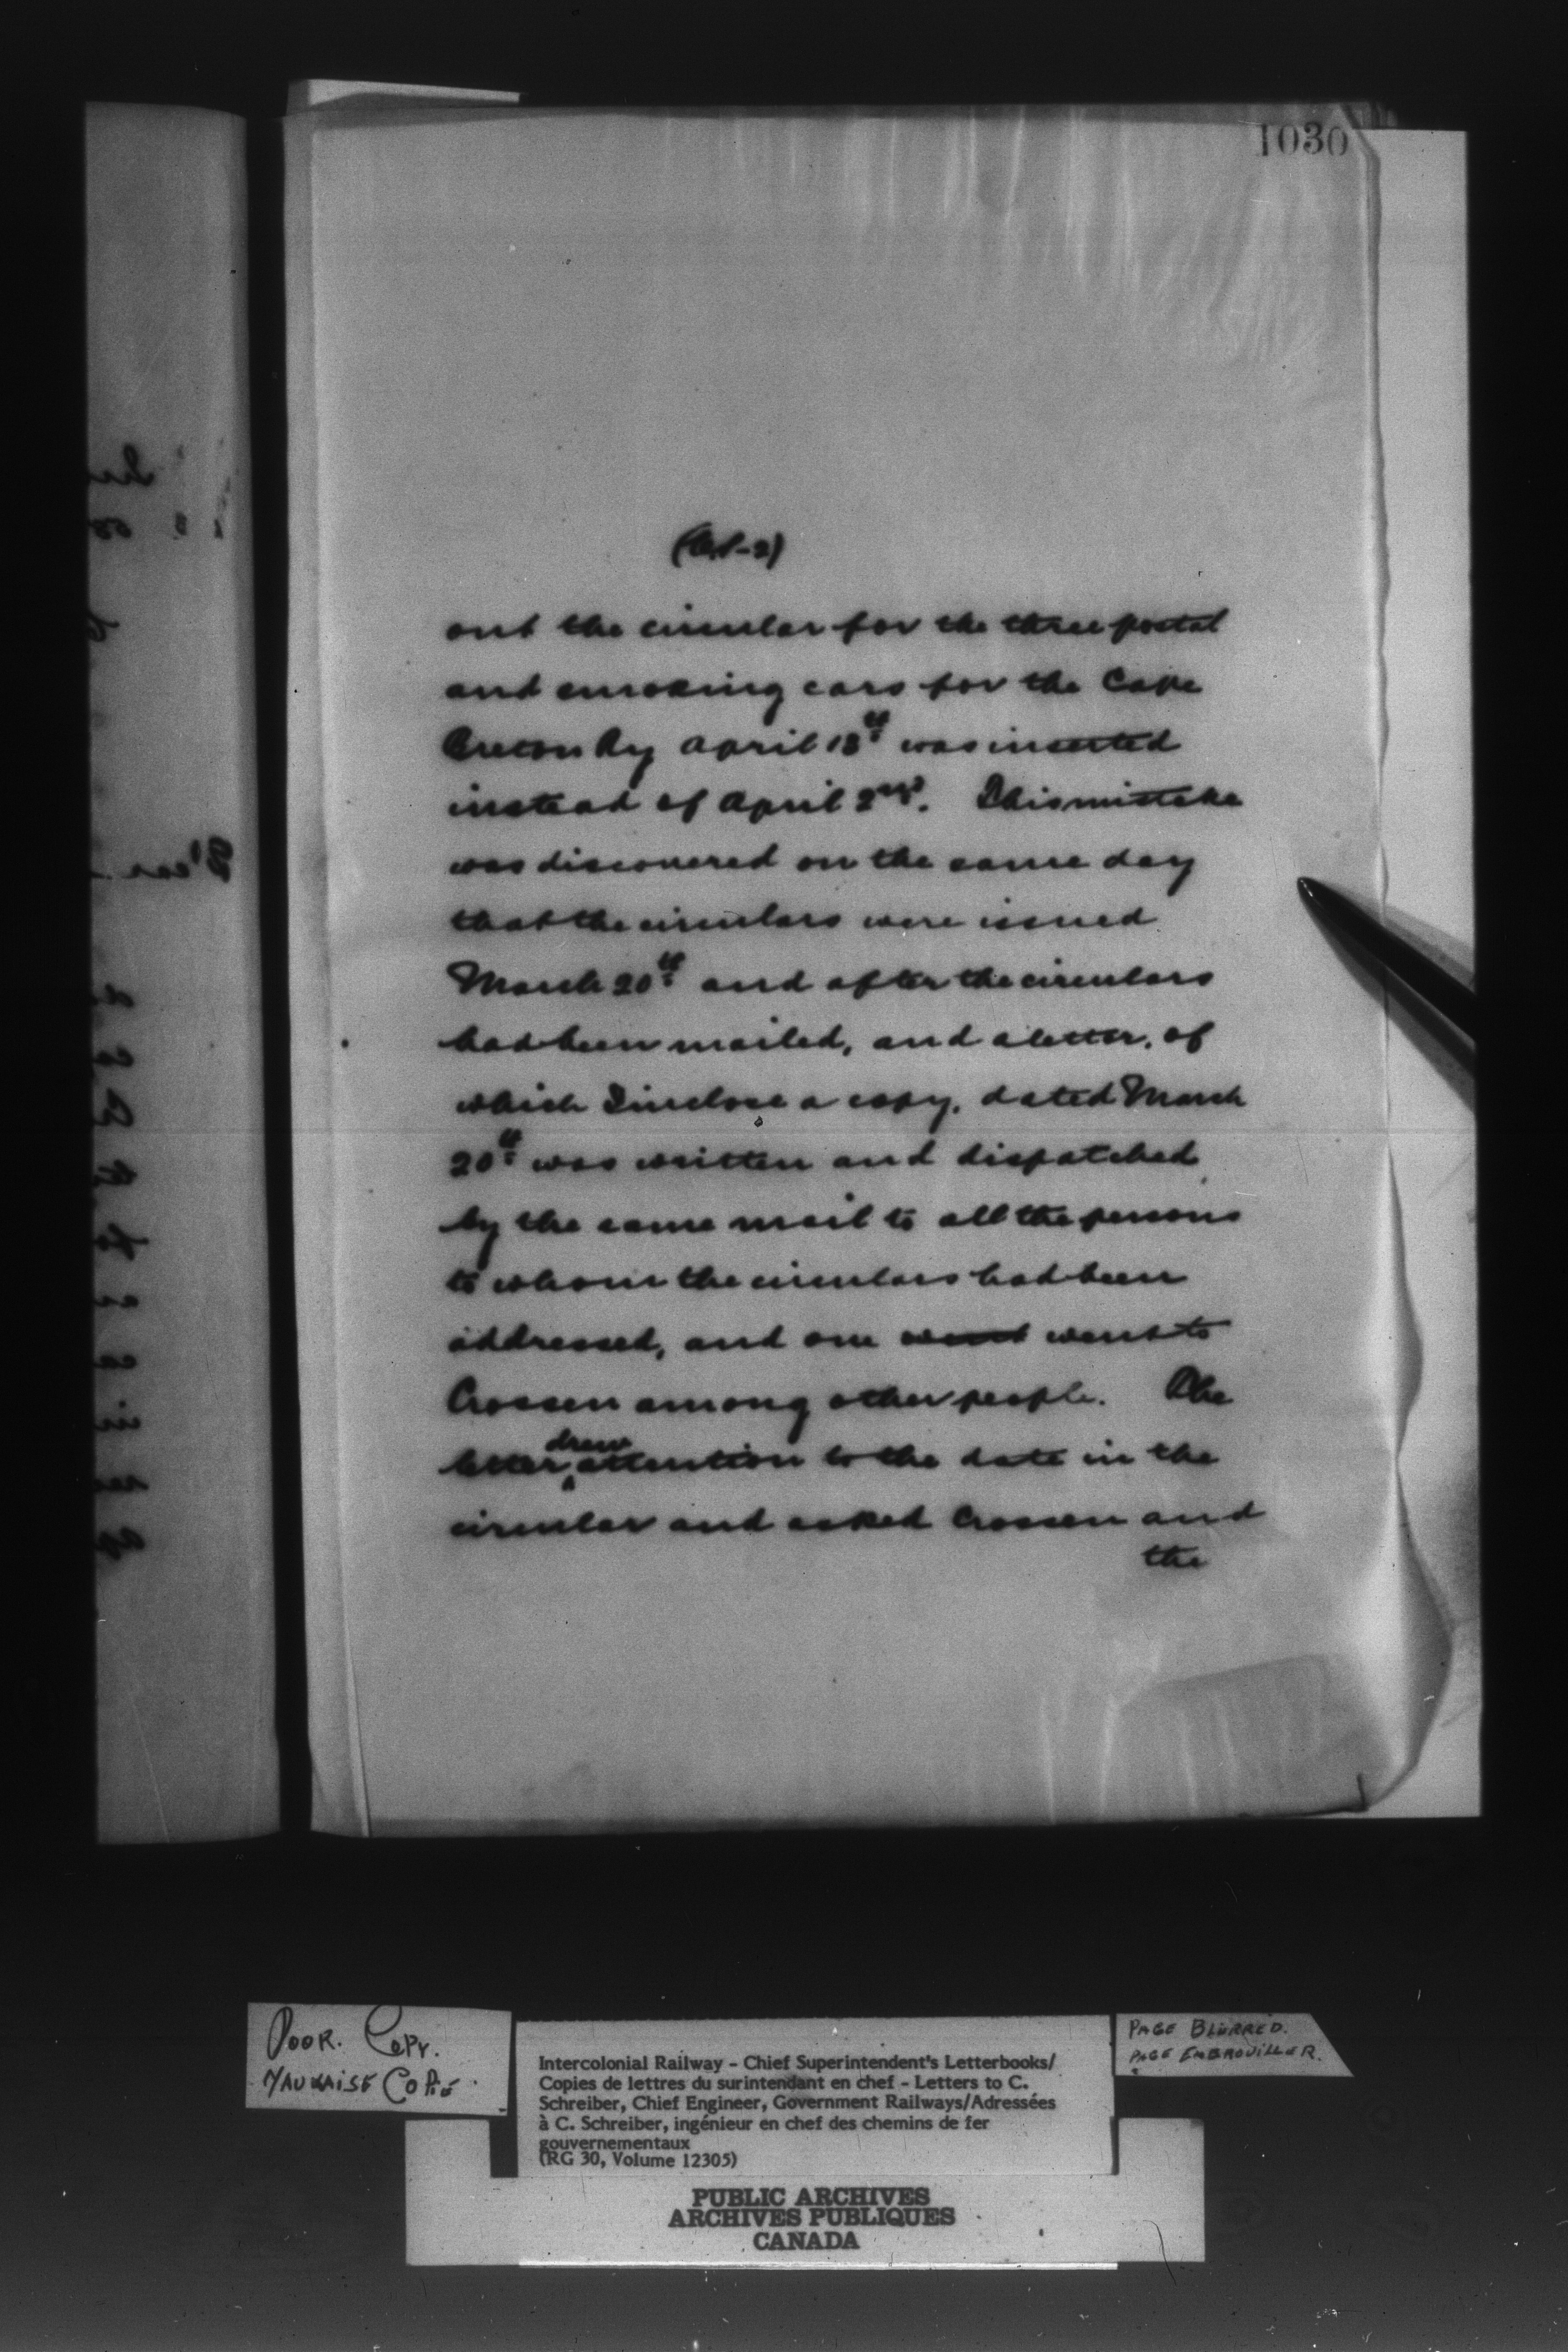 1030
out the circular for the three postal
and smoking cars for the Cape
Breton Ry April 13th was inserted
instead of April 2nd. This mistake
was discovered on the same day
that the circulars were issued
March 20th and after the circulars
had been mailed, and a letter, of
which I inclose a copy, dated March
20th was written and dispatched
by the same mail to all the persons
to whom the circulars had been
addressed, and one went went to
Crossen among other people. The
letter drew attention to the date in the
circular and asked Crossen and
the
POOR. COPY.
MAUVAISE COPIE.
Intercolonial Railway - Chief Superintendent's Letterbooks/
Copies de lettres du surintendant en chef - Letters to C.
Schreiber, Chief Engineer, Government Railways/Adressées
à C. Schreiber, ingénieur en chef des chemins de fer
gouvernementaux
(RG 30, Volume 12305)
PAGE BLURRED.
PAGE EMBROUILLER.
PUBLIC ARCHIVES
ARCHIVES PUBLIQUES
CANADA